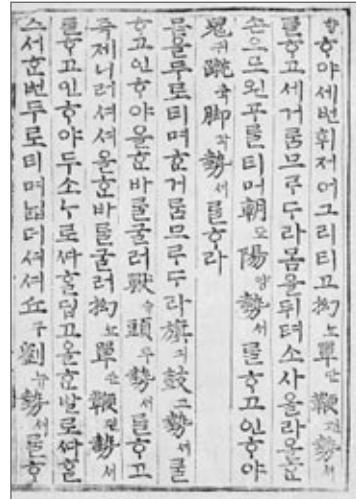 향ᄒᆞ야세번휘저어그리티고拗요單단鞭편勢셔
ᄅᆞᆯᄒᆞ고세거ᄅᆞᆷ므ᄅᆞᄃᆞ라몸을뒤텨소사올라올ᄒᆞᆫ
손으로왼티며朝됴陽양勢셔ᄅᆞᆯᄒᆞ고인ᄒᆞ야
鬼귀蹴축脚각勢셔ᄅᆞᆯᄒᆞ라
몸을두로티며ᄒᆞᆫ거ᄅᆞᆷ므ᄅᆞᄃᆞ라旗긔鼓고勢셔ᄅᆞᆯ
ᄒᆞ고인ᄒᆞ야올ᄒᆞᆫ바ᄅᆞᆯ굴러獸슈頭두勢셔ᄅᆞᆯᄒᆞ고
즉제니러셔셔올ᄒᆞᆫ바ᄅᆞᆯ굴러拗요單단鞭편勢셔
ᄅᆞᆯᄒᆞ고인ᄒᆞ야두소ᄂᆞ로ᄡᅡ흘딥고올ᄒᆞᆫ발로ᄡᅡ흘
스서ᄒᆞᆫ번두로티며셔셔丘구劉뉴勢셔ᄅᆞᆯᄒᆞ